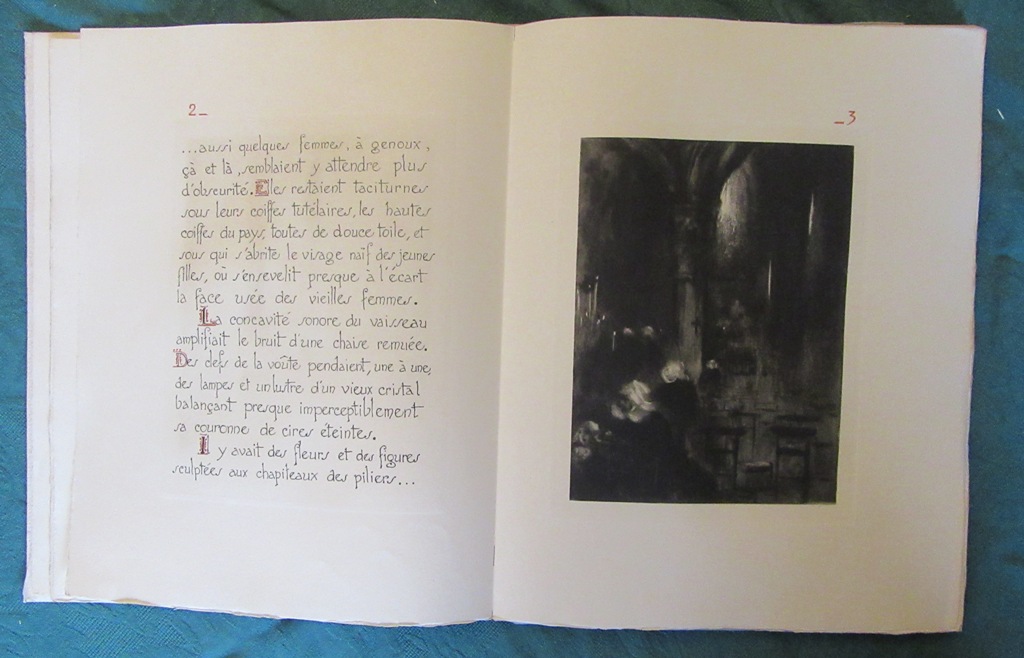 2_
...aussi quelques femmes, à genoux,
çà et là, semblaient y attendre plus
d'obscurité. Elles restaient taciturnes
sous leurs coiffes tutélaires, les hautes
coiffes du pays, toutes de douce toile, et
sous qui s'abrite le visage naïf des jeunes
filles, où s'ensevelit presque à l'écart
la face usée des vieilles femmes.
La concavité sonore du vaisseau
amplifiait le bruit d'une chaise remuée.
Des clefs de la voûte pendaient, une à une,
des lampes et un lustre d'un vieux cristal
balançant presque imperceptiblement
sa couronne de cires éteintes.
Il y avait des fleurs et des figures
sculptées aux chapiteaux des piliers...
_3